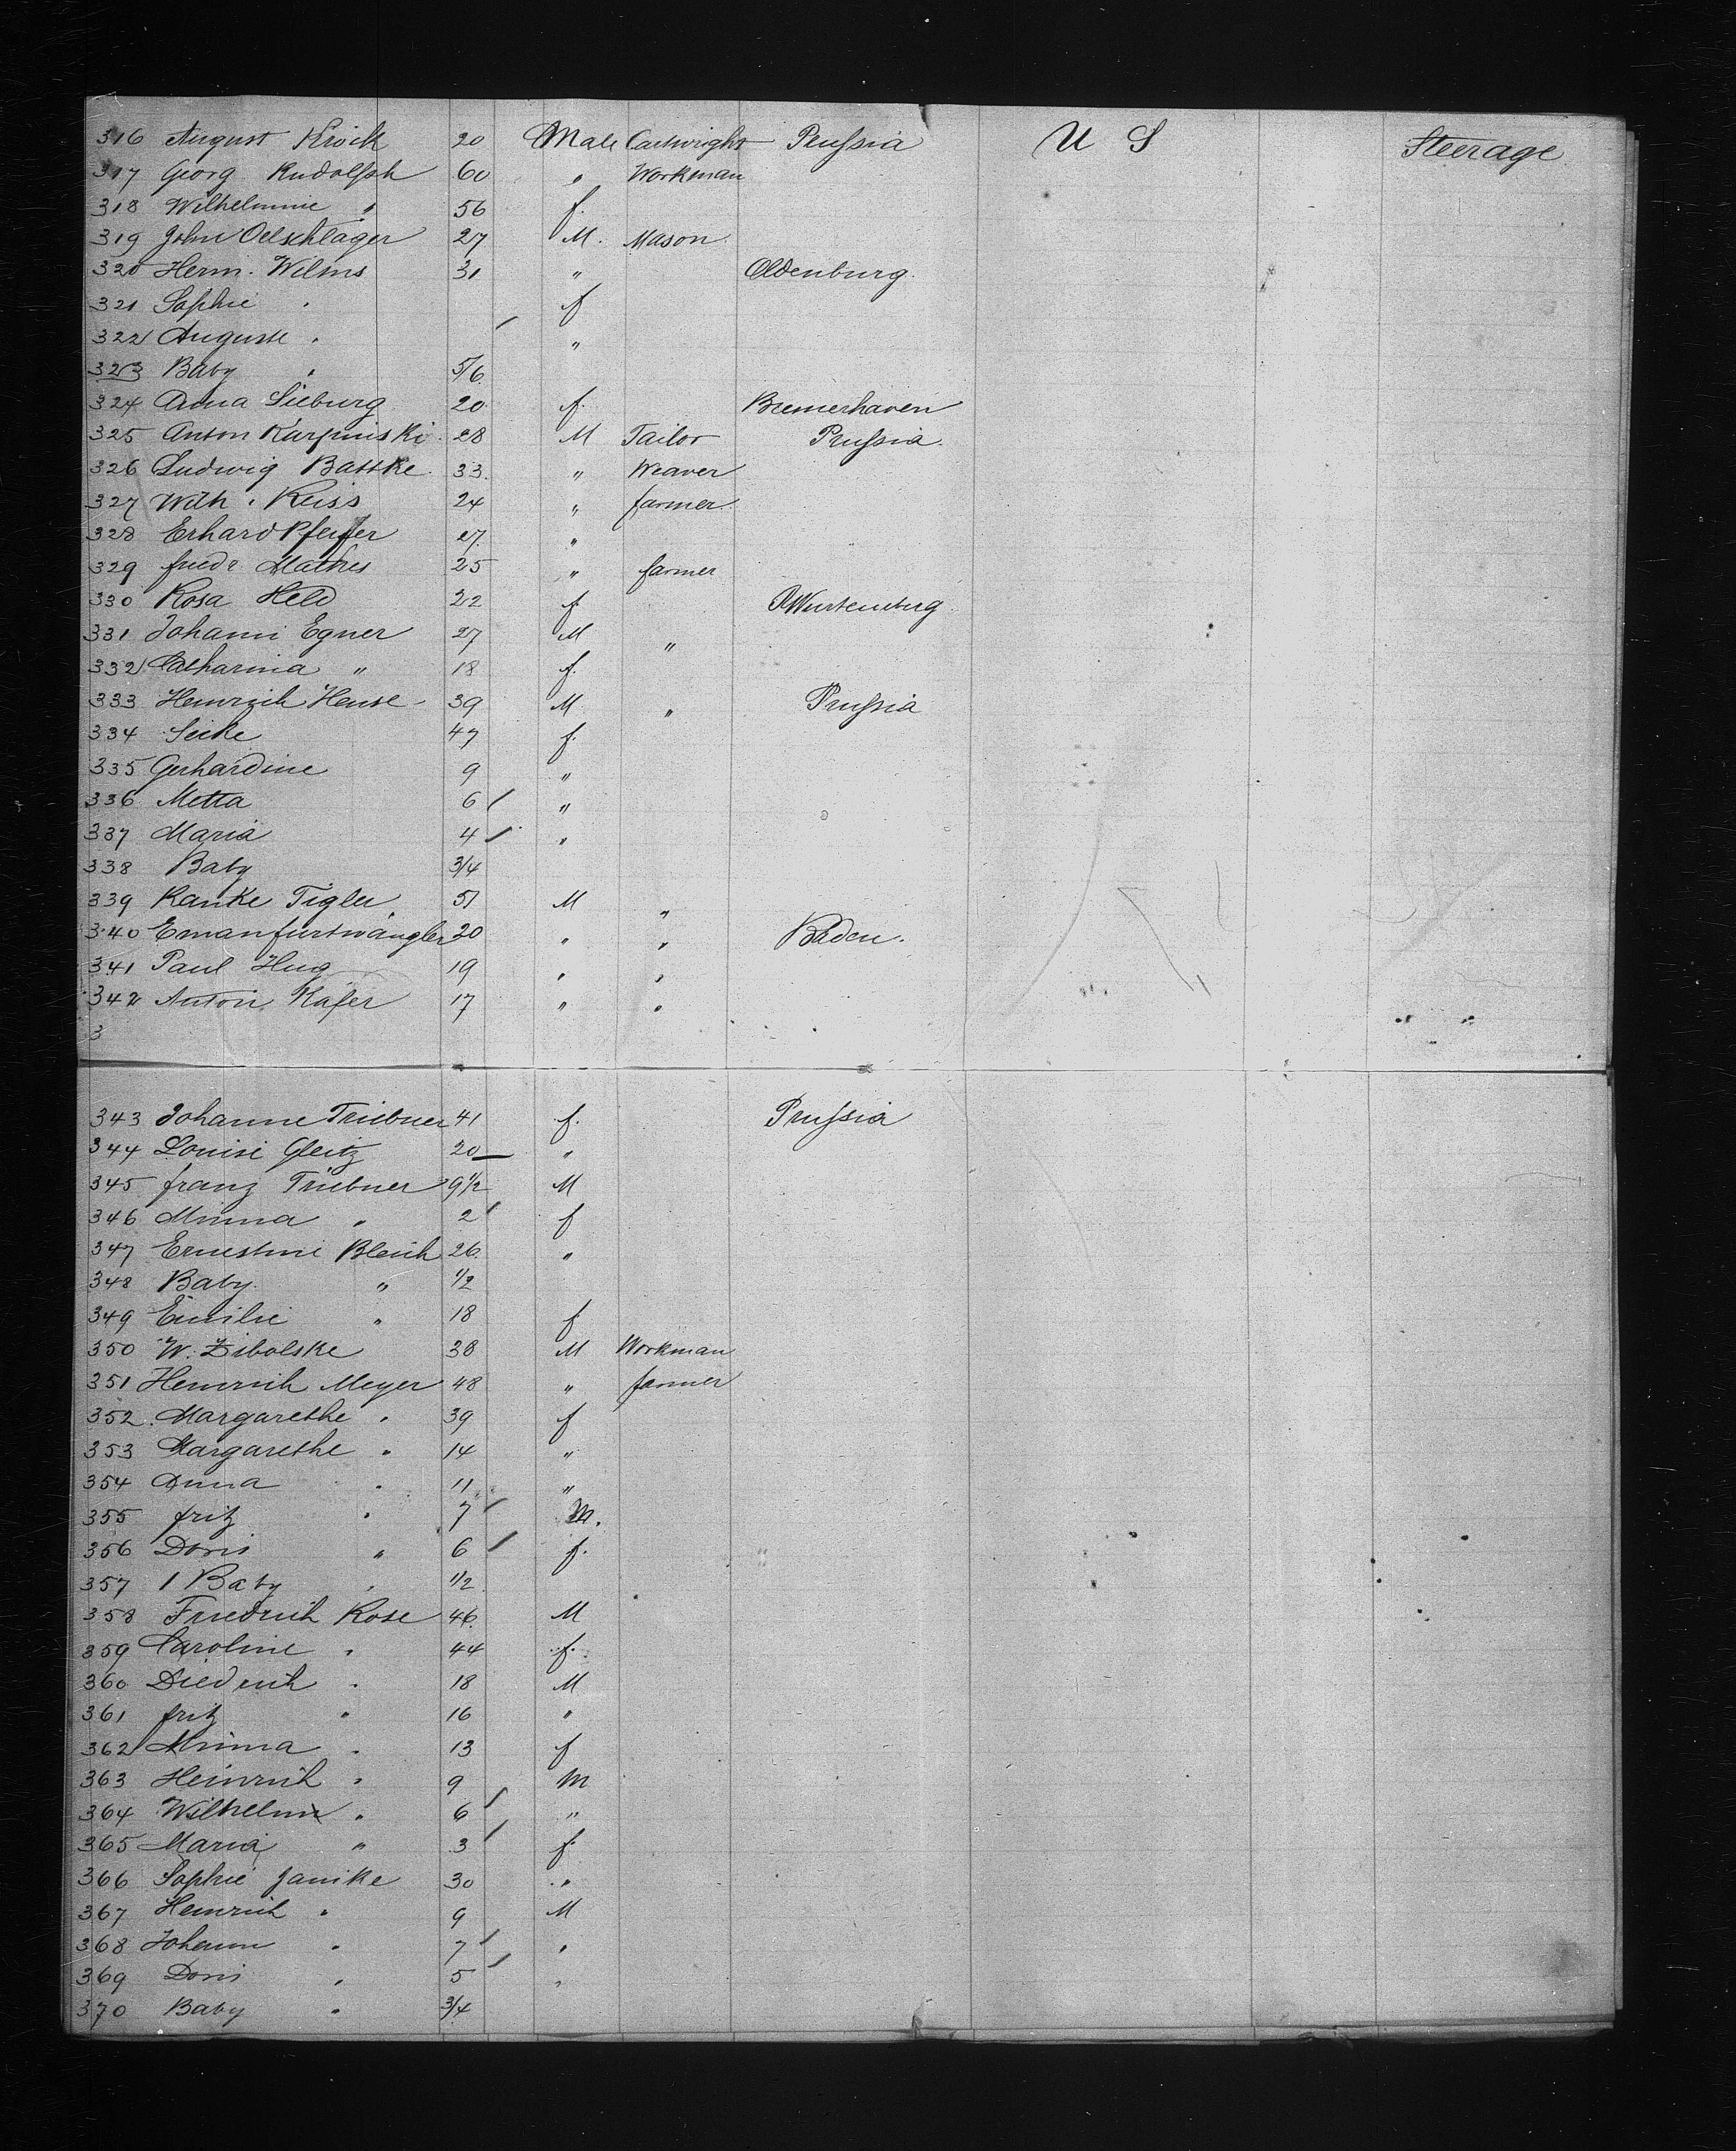 316 August Krock 20 Male Cartwright Prussia U S Steerage
317 Georg Rudolph 60 " Workman
318 Wilhelmine " 56 f.
319 John Oelschlager 27 M. Mason
320 Herm. Wilms 31 " Oldenburg.
321 Sophie " f
322 Auguste " "
323 Baby " 5/6
324 Anna Sieburg 20 f. Bremerhaven
325 Anton Karpinski 28 M Tailor Prussia
326 Ludwig Battke 33. " Weaver
327 Wilh. Reiss 24 " farmer
328 Erhard Pfeiffer 27. "
329 friedr Mathes 25 " farmer
330 Rosa Held 22 f. Wurtemberg
331 Johann Egner 27 M "
332 Catharina " 18 f.
333 Heinrich Hense 39 M " Prussia
334 47 f.
335 Gerhardine 9 "
336 Metta 6 "
337 Maria 4 "
338 Baby 3/4
339 Ranke Tigler 51 M "
340 Eman furtwängler 20 " " Baden.
341 Paul Hug 19 " "
342 Anton Kafer 17 " "
3
343 Johanne Triebner 41 f. Prussia
344 Louise Gleitz 20 "
345 franz Triebner 9 1/2 M
346 Minna " 2 f
347 Ernestine Bleich 26. "
348 Baby " 1/2
349 Emilie " 18 f
350 W. Zibolske 38 M Workman
351 Heinrich Meyer 48 " farmer
352. Margarethe " 39 f
353 Margarethe " 14 "
354 Anna " 11 "
355 fritz " 7 M.
356 Doris " 6 f.
357 1 Baby " 1/2
358 Friedrich Rose 46. M
359 Caroline " 44 f.
360 Diedrich " 18 M
361 fritz " 16 "
362 Minna " 13 f
363 Heinrich " 9 M
364 Wilhelm " 6 "
365 Maria " 3 f
366 Sophie Janike 30 "
367 Heinrich " 9 M
368 Johann " 7 "
369 Doris " 5 "
370 Baby " 3/4